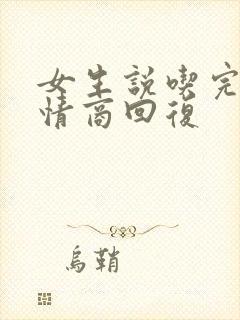 女生説喫完
情商回復
烏鞘